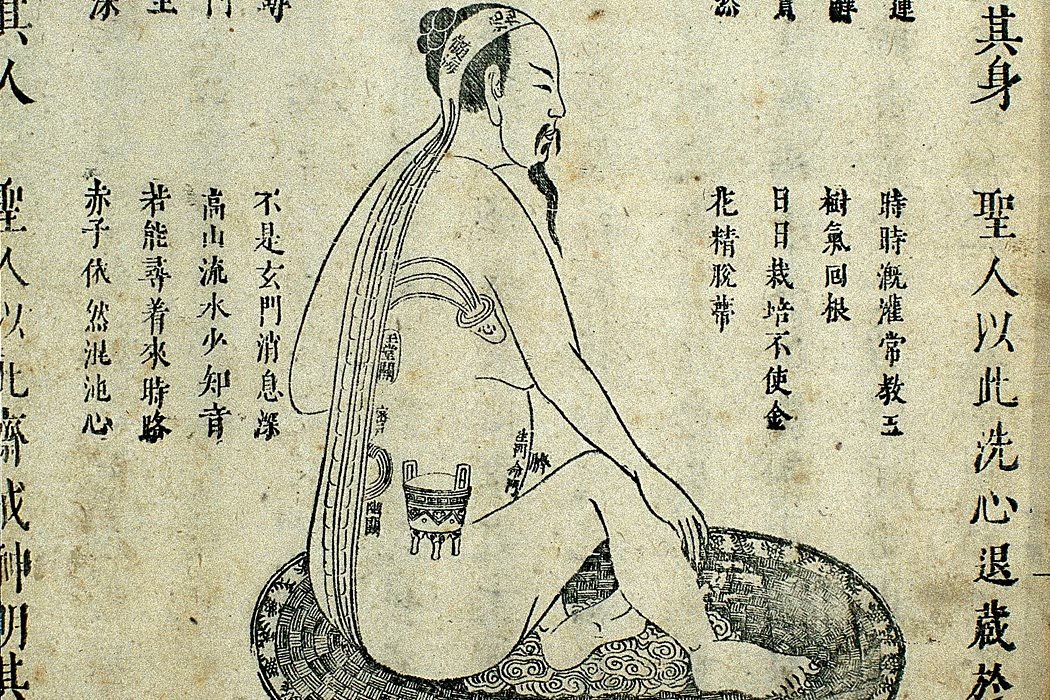 其身
聖人以此洗心退藏於
蓮
時時溉灌常教玉
樹氣回根
日日栽培不使金
花精脫蔕
髓海
心
玉堂關
臍
幽關
門
不是玄門消息深
高山流水少知音
若能尋着來時路
赤子依然混池心
其人
聖人以此齋戒神明其